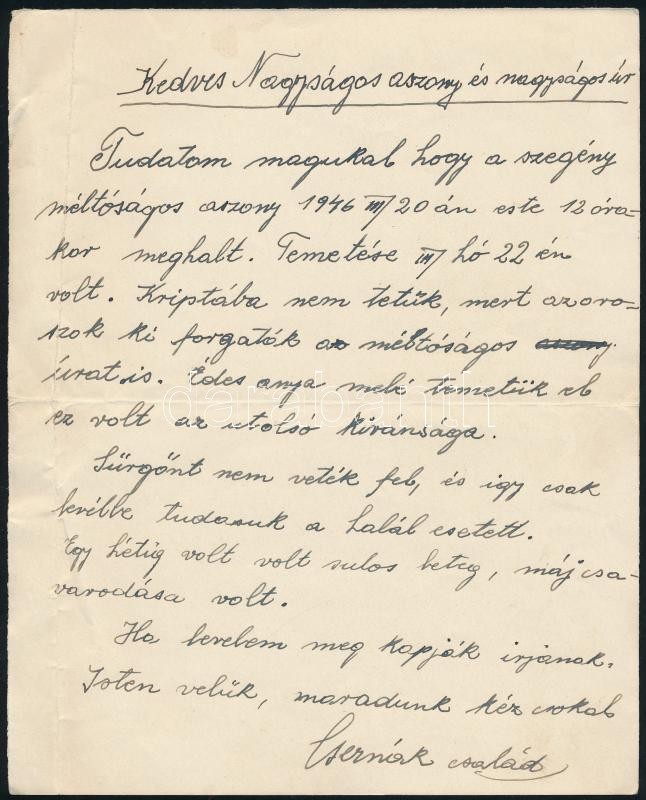 Kedves Nagyságos aszony és nagyságos úr
Tudatom magukal hogy a szegény
méltóságos aszony 1946 III/20 án este 12 óra-
kor meghalt. Temetése III/ hó 22 én
volt. Kriptába nem tetük, mert az oro-
szok ki forgaták a méltóságos aszony
úrat is. Édes anya melé temetük el
ez volt az utolsó kivánsága.
Sürgönt nem veték fel, és igy csak
levélbe tudasuk a halál esetett.
Egy hétig volt volt sulos beteg, máj csa-
varodása volt.
Ha levelem meg kapják irjanak.
Isten velük, maradunk kéz csokal
Csernák család
darabanth